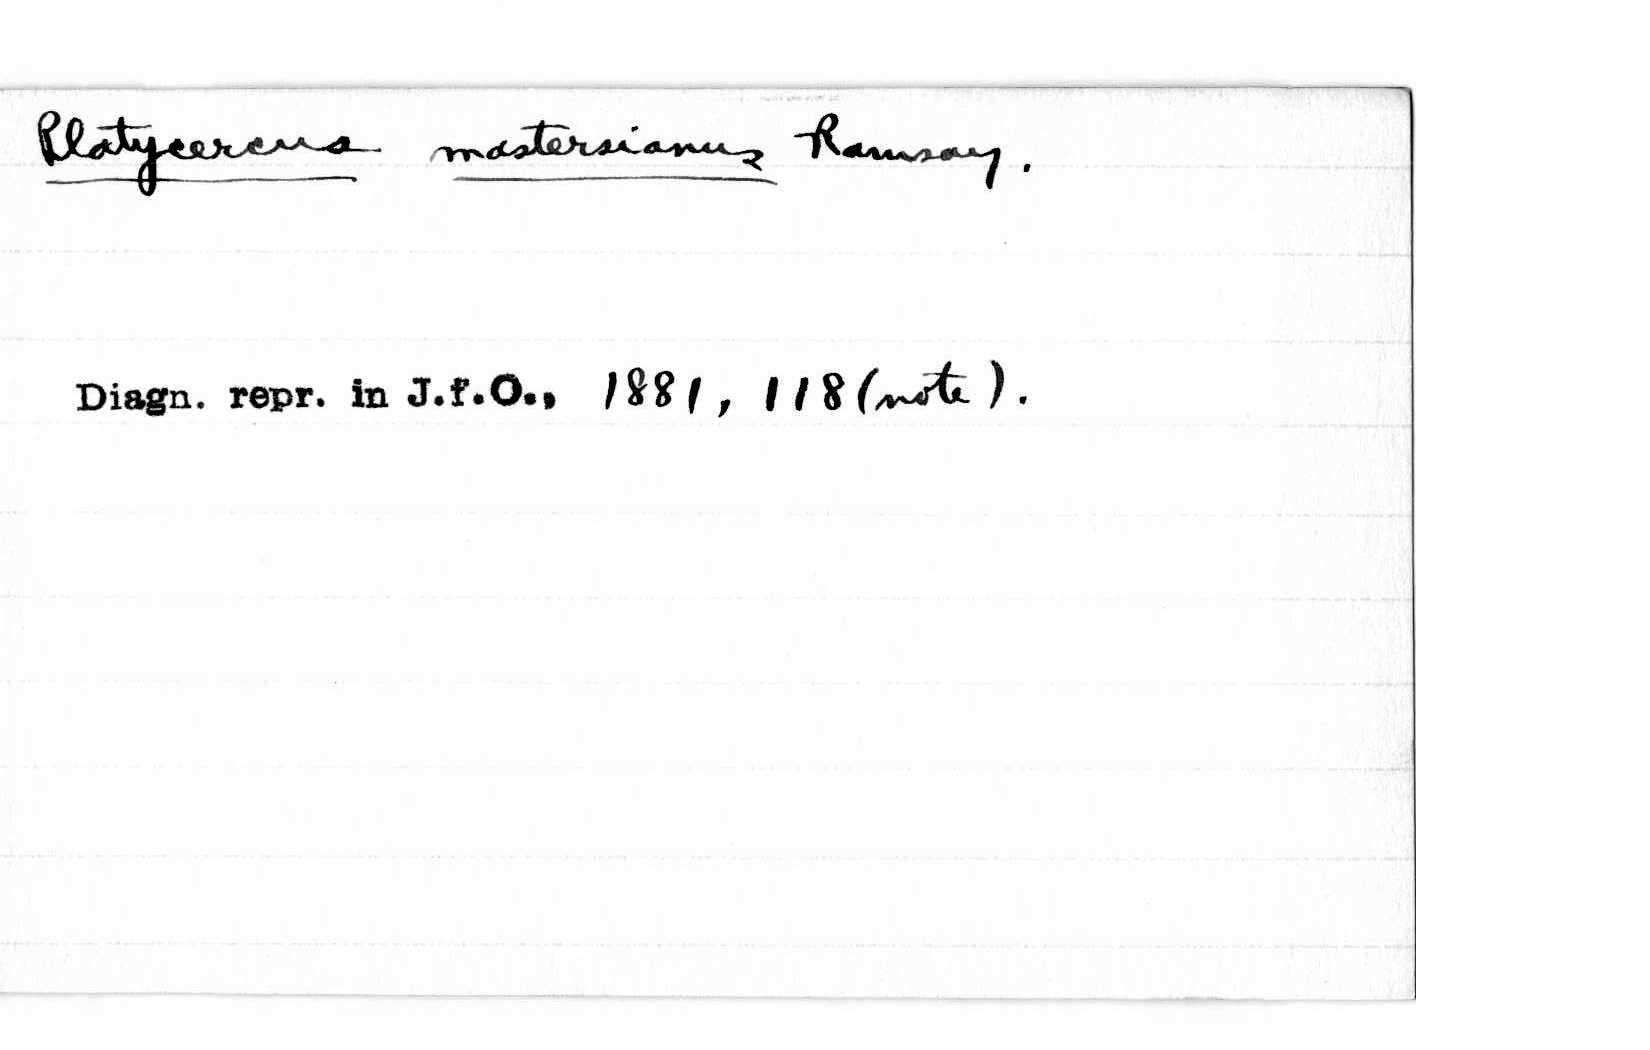 Platycercus mastersianus Ramsay.
Diagn. repr. in J.f.O., 1881, 118 (note).